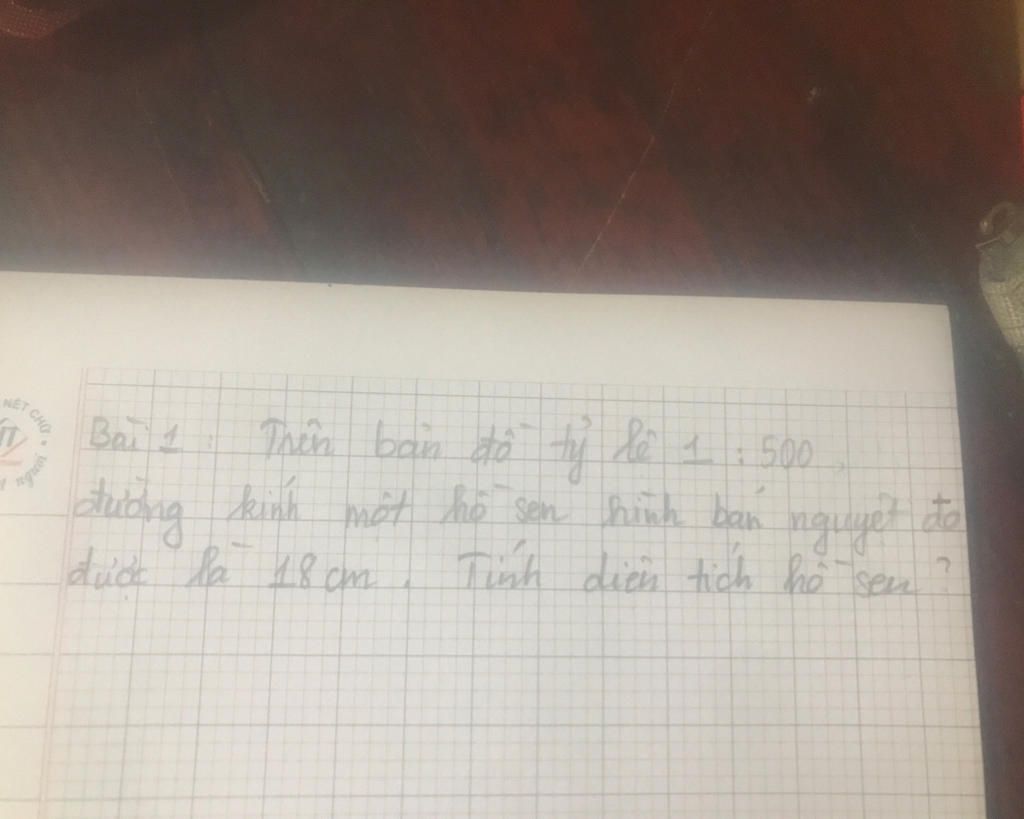 NÉT CHỮ
người
Bài 1 : Trên bản đồ tỷ lệ 1 : 500,
đường kính một hồ sen hình bán nguyệt đo
được là 18 cm. Tính diện tích hồ sen ?